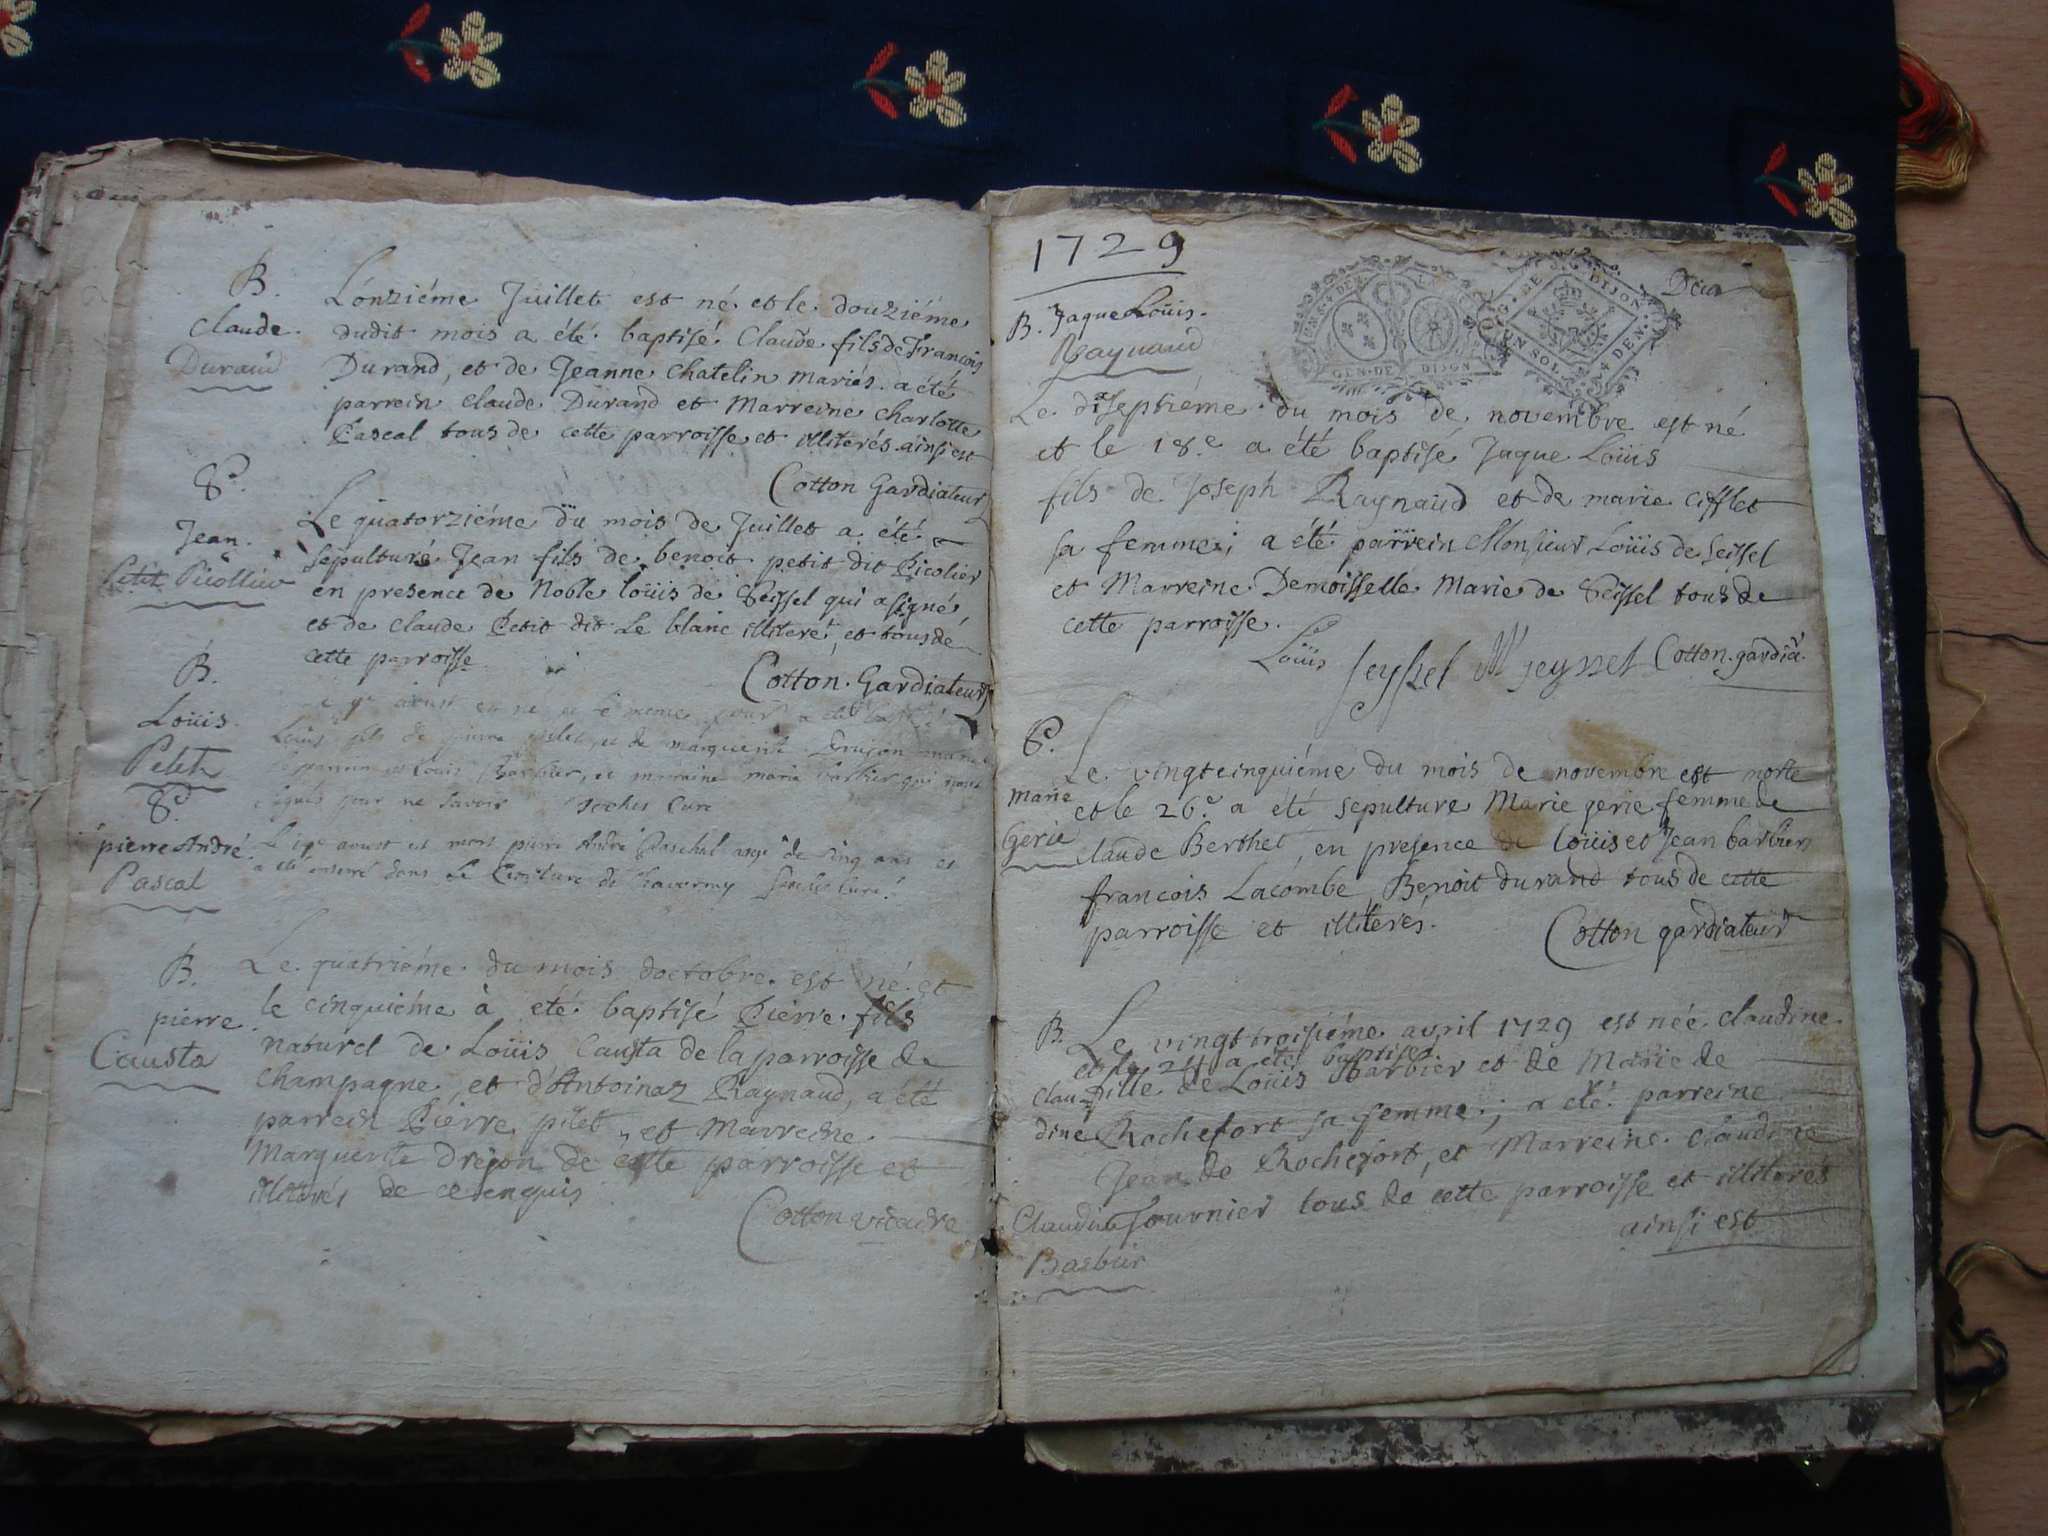 B.
Claude.
Durand
Lónziéme Juillet est né et le douziéme
dudit mois a été baptisé Claude fils de François
Durand, et de Jeanne Chatelin mariés. a été
parrein claude Durand et Marreine Charlotte
Pascal tous de cette parroisse et illiterés ainsi est
Cotton Gardiateur
Sre.
Jean.
Petit Picollier
Le quatorziéme du mois de Juillet a été
sepulturé Jean fils de benoit petit dit Picolier
en presence de Noble loüis de Seissel qui a signé
et de claude Petit dit Le blanc illiteré et tous dé
cette parroisse
Cotton. Gardiateur
B.
Loüis.
Petit
aoust est né et le meme jour a été
Loüis fils de pierre et de marguerite
parrain Louis Barbier, et marraine maria barbier qui n'ont
signés pour ne savoir Curé
S.
pierre André
Pascal
aoust est mort pierre André Paschal agé de cinq ans et
a été enterré dans Le Cimitiere de Chavornay Curé
B.
pierre.
Causta
Le quatriéme du mois doctobre est né et
le cinquiéme à été baptisé Pierre fils
naturel de Loüis Causta de la parroisse de
champagne, et d'Antoinaz Raynaud, a été
parrein Pierre pilet et Marreine
Marguerite Drejon de cette parroisse et
illiterés de ce enquis
Cotton vicaire
1729
GEN. DE DIJON
G. DE DIJON
UN SOL
Deux
B. Jaque Loüis.
Raynaud
Le diseptiéme du mois de novembre est né
et le 18.e a été baptisé Jaque Loüis
fils de Joseph Raynaud et de marie cifflet
sa femme; a été parrein Monsieur Loüis de Seissel
et Marreine Demoisselle Marie de Seissel tous de
cette parroisse.
Loüis Seyssel M Seyssel Cotton. gardiar.
Sre.
Marie
Gerie
Le vingtcinquiéme du mois de novembre est morte
et le 26.e a été sepulture Marie gerie femme de
claude Berthet, en presence de loüis et Jean barbier
françois Lacombe, Benoit durand tous de cette
parroisse et illiterés.
Cotton gardiateur
B.
Claudine
Le vingt troisiéme avril 1729 est née claudine
et le 24 a été baptisée
fille de Loüis Barbier et de Marie de
Rochefort sa femme; a été parreine
Jean de Rochefort, et Marreine claudine
fournier tous de cette parroisse et illiterés
ainsi est
Claudine
Barbier